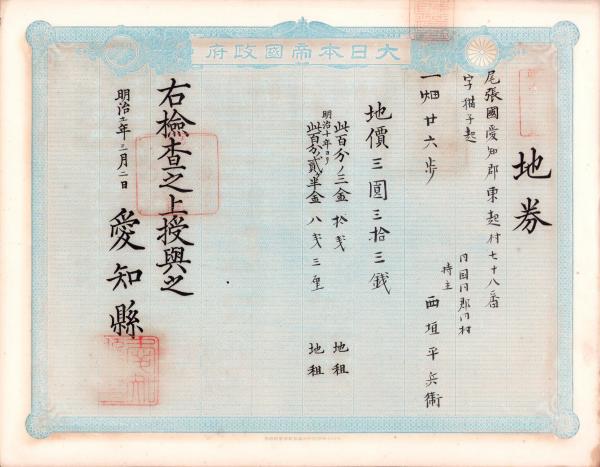 大日本帝國政府
地券
尾張國愛知郡東起村七十八番
字猫子起
一畑廿六歩
同国同郡同村
持主 西垣平兵衛
地價三圓三拾三錢
此百分ノ三金拾戔 地租
明治十年ヨリ
此百分ノ貳半金八戔三厘 地租
右檢査之上授與之
明治 年三月二日
愛知縣